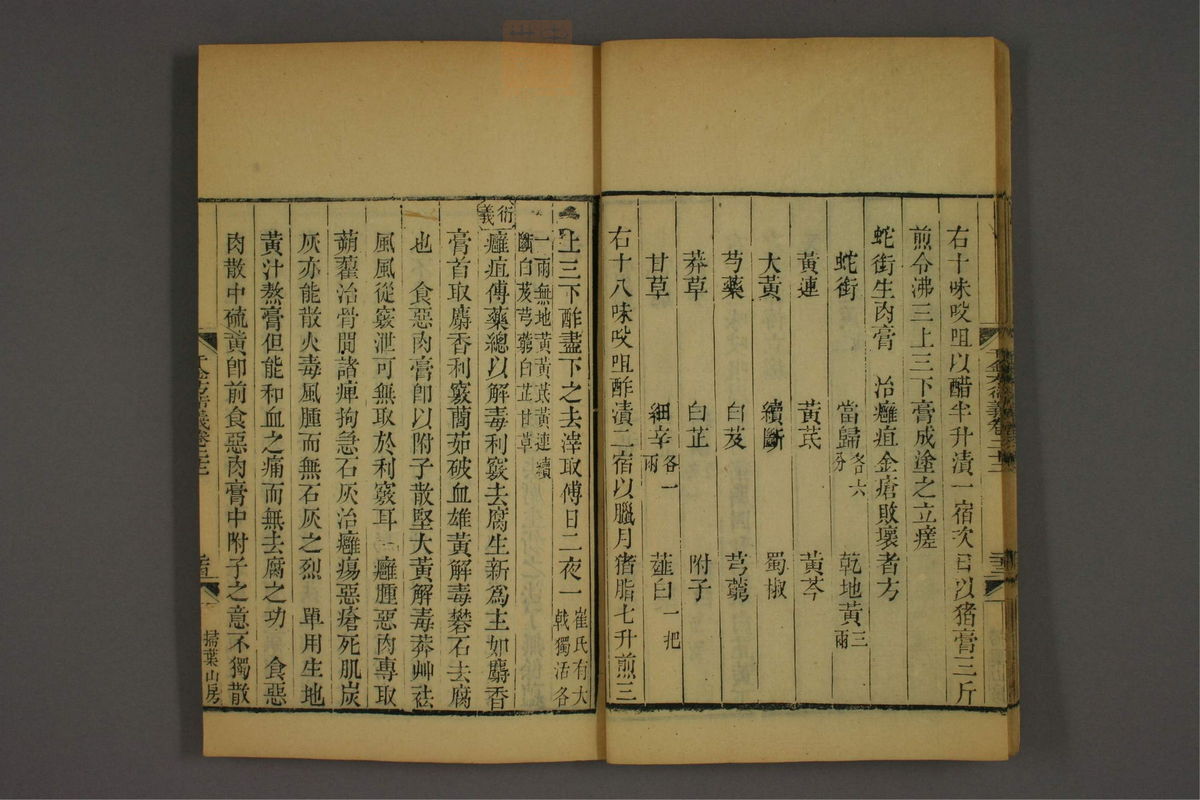 右十味㕮咀以醋半升漬一宿次日以猪膏三斤
煎令沸三上三下膏成塗之立瘥
蛇銜生肉膏　治癰疽金瘡敗壞者方
蛇銜　當歸各六分　乾地黃三兩
黃連　黃芪　黃芩
大黃　續斷　蜀椒
芍藥　白芨　芎藭
莽草　白芷　附子
甘草　細辛各一兩　薤白一把
右十八味㕮咀酢漬二宿以臘月猪脂七升煎三
上三下酢盡下之去滓取傅日二夜一崔氏有大戟獨活各
一兩無地黃黃芪黃連續斷白芨芎藭白芷甘草
衍義
癰疽傅藥總以解毒利竅去腐生新爲主如麝香
膏首取麝香利竅䕡茹破血雄黃解毒礬石去腐
也　食惡肉膏卽以附子散堅大黃解毒莽艸祛
風風從竅泄可無取於利竅耳　癰腫惡肉專取
蒴藋治骨間諸痺拘急石灰治癰瘍惡瘡死肌炭
灰亦能散火毒風腫而無石灰之烈　單用生地
黃汁熬膏但能和血之痛而無去腐之功　食惡
肉散中硫黃卽前食惡肉膏中附子之意不獨散
千金方衍義卷二十二
掃葉山房